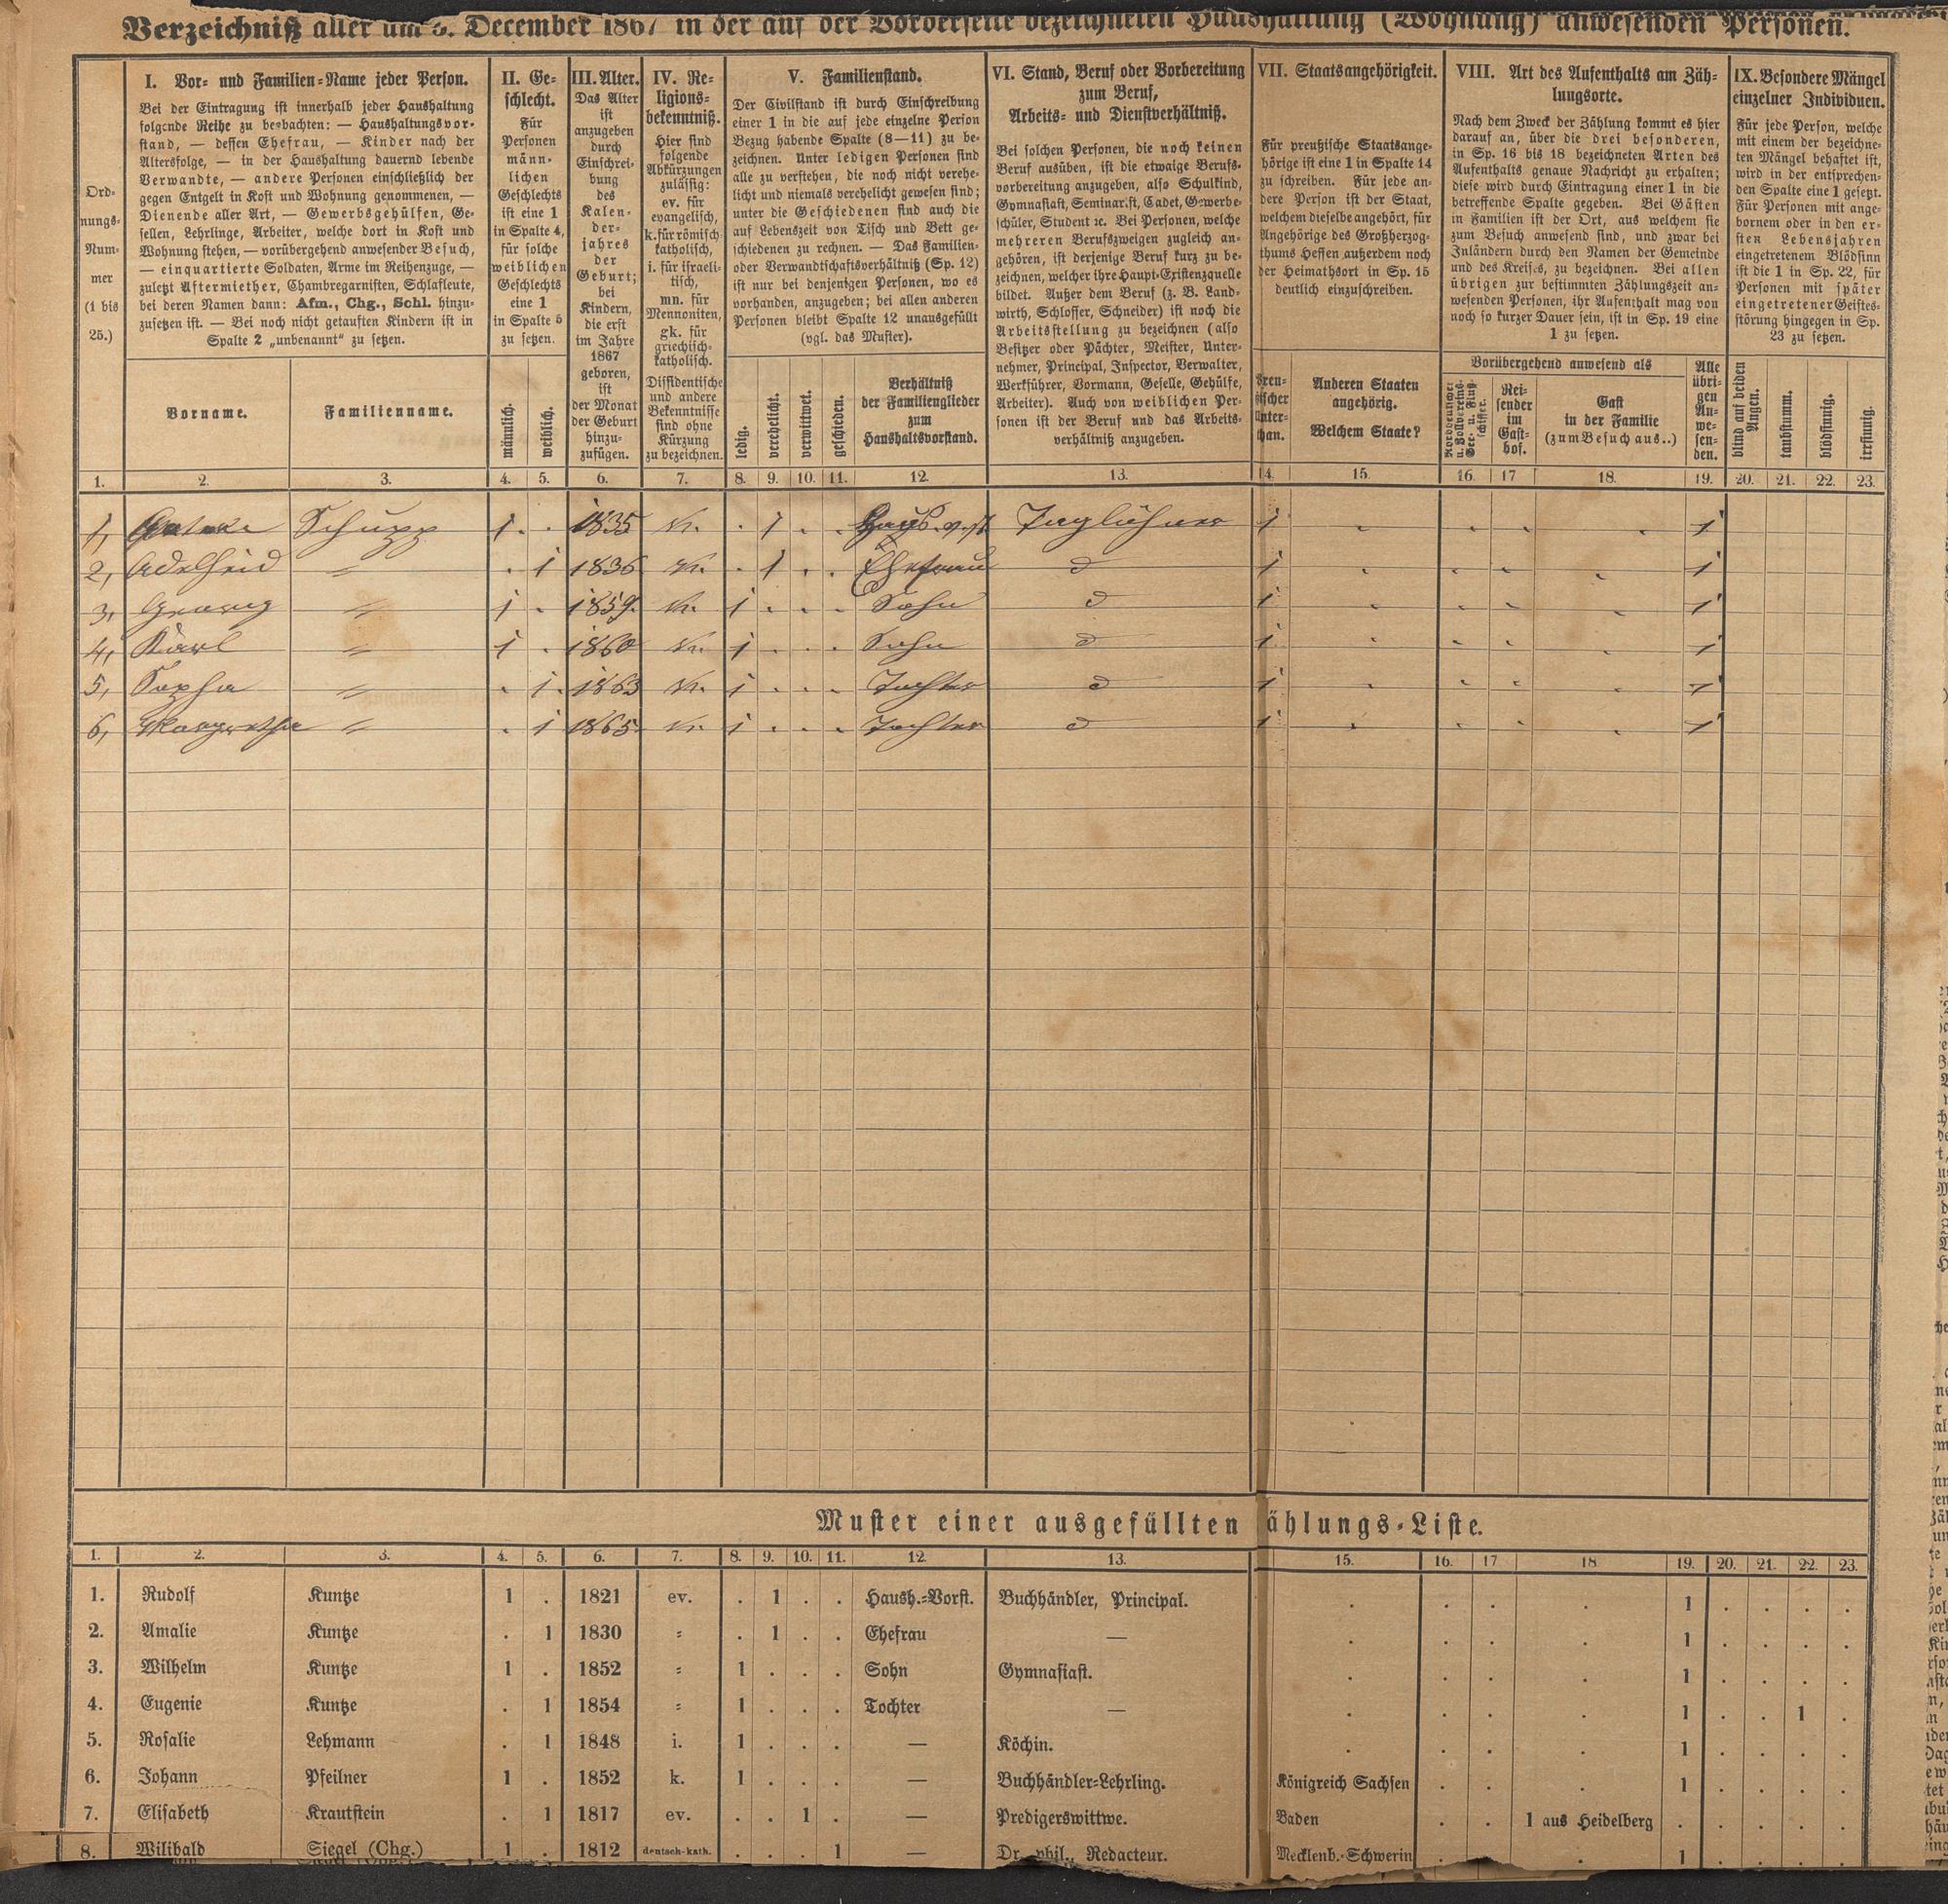 Verzeichniß aller am 3. December 1867 in der auf der Vorderseite bezeichneten Haushaltung (Wohnung) anwesenden Personen.
Ord-
nungs-
Num-
mer
(1 bis
25.)
I. Vor- und Familien-Name jeder Person.
Bei der Eintragung ist innerhalb jeder Haushaltung
folgende Reihe zu beobachten: — Haushaltungsvor-
stand, — dessen Ehefrau, — Kinder nach der
Altersfolge, — in der Haushaltung dauernd lebende
Verwandte, — andere Personen einschließlich der
gegen Entgelt in Kost und Wohnung genommenen, —
Dienende aller Art, — Gewerbsgehülfen, Ge-
sellen, Lehrlinge, Arbeiter, welche dort in Kost und
Wohnung stehen, — vorübergehend anwesender Besuch,
— einquartierte Soldaten, Arme im Reihenzuge, —
zuletzt Aftermiether, Chambregarnisten, Schlafleute,
bei deren Namen dann: Afm., Chg., Schl. hinzu-
zusetzen ist. — Bei noch nicht getauften Kindern ist in
Spalte 2 „unbenannt“ zu setzen.
Vorname.
Familienname.
II. Ge-
schlecht.
Für
Personen
männ-
lichen
Geschlechts
ist eine 1
in Spalte 4,
für solche
weiblichen
Geschlechts
eine 1
in Spalte 5
zu setzen.
männlich.
weiblich.
III. Alter.
Das Alter
ist
anzugeben
durch
Einschrei-
bung
des
Kalen-
der-
jahres
der
Geburt;
bei
Kindern,
die erst
im Jahre
1867
geboren,
ist
der Monat
der Geburt
hinzu-
zufügen.
IV. Re-
ligions-
bekenntniß.
Hier sind
folgende
Abkürzungen
zulässig:
ev. für
evangelisch,
k. für römisch-
katholisch,
i. für israeli-
tisch,
mn. für
Mennoniten,
gk. für
griechisch-
katholisch.
Dissidentische
und andere
Bekenntnisse
sind ohne
Kürzung
zu bezeichnen.
V. Familienstand.
Der Civilstand ist durch Einschreibung
einer 1 in die auf jede einzelne Person
Bezug habende Spalte (8—11) zu be-
zeichnen. Unter ledigen Personen sind
alle zu verstehen, die noch nicht verehe-
licht und niemals verehelicht gewesen sind;
unter die Geschiedenen sind auch die
auf Lebenszeit von Tisch und Bett ge-
schiedenen zu rechnen. — Das Familien-
oder Verwandtschaftsverhältniß (Sp. 12)
ist nur bei denjenigen Personen, wo es
vorhanden, anzugeben; bei allen anderen
Personen bleibt Spalte 12 unausgefüllt
(vgl. das Muster).
ledig.
verehelicht.
verwittwet.
geschieden.
Verhältniß
der Familienglieder
zum
Haushaltsvorstand.
VI. Stand, Beruf oder Vorbereitung
zum Beruf,
Arbeits- und Dienstverhältniß.
Bei solchen Personen, die noch keinen
Beruf ausüben, ist die etwaige Berufs-
vorbereitung anzugeben, also Schulkind,
Gymnasiast, Seminarist, Cadet, Gewerbe-
schüler, Student ꝛc. Bei Personen, welche
mehreren Berufszweigen zugleich an-
gehören, ist derjenige Beruf kurz zu be-
zeichnen, welcher ihre Haupt-Existenzquelle
bildet. Außer dem Beruf (z. B. Land-
wirth, Schlosser, Schneider) ist noch die
Arbeitsstellung zu bezeichnen (also
Besitzer oder Pächter, Meister, Unter-
nehmer, Principal, Inspector, Verwalter,
Werkführer, Vormann, Geselle, Gehülfe,
Arbeiter). Auch von weiblichen Per-
sonen ist der Beruf und das Arbeits-
verhältniß anzugeben.
VII. Staatsangehörigkeit.
Für preußische Staatsange-
hörige ist eine 1 in Spalte 14
zu schreiben. Für jede an-
dere Person ist der Staat,
welchem dieselbe angehört, für
Angehörige des Großherzog-
thums Hessen außerdem noch
der Heimathsort in Sp. 15
deutlich einzuschreiben.
Preu-
ßischer
Unter-
than.
Anderen Staaten
angehörig.
Welchem Staate?
VIII. Art des Aufenthalts am Zäh-
lungsorte.
Nach dem Zweck der Zählung kommt es hier
darauf an, über die drei besonderen,
in Sp. 16 bis 18 bezeichneten Arten des
Aufenthalts genaue Nachricht zu erhalten;
diese wird durch Eintragung einer 1 in die
betreffende Spalte gegeben. Bei Gästen
in Familien ist der Ort, aus welchem sie
zum Besuch anwesend sind, und zwar bei
Inländern durch den Namen der Gemeinde
und des Kreises, zu bezeichnen. Bei allen
übrigen zur bestimmten Zählungszeit an-
wesenden Personen, ihr Aufenthalt mag von
noch so kurzer Dauer sein, ist in Sp. 19 eine
1 zu setzen.
Vorübergehend anwesend als
Rei-
sender
im
Gast-
hof.
Gast
in der Familie
(zum Besuch aus..)
Alle
übri-
gen
An-
we-
sen-
den.
IX. Besondere Mängel
einzelner Individuen.
Für jede Person, welche
mit einem der bezeichne-
ten Mängel behaftet ist,
wird in der entsprechen-
den Spalte eine 1 gesetzt.
Für Personen mit ange-
bornem oder in den er-
sten Lebensjahren
eingetretenem Blödsinn
ist die 1 in Sp. 22, für
Personen mit später
eingetretener Geistes-
störung hingegen in Sp.
23 zu setzen.
blind auf beiden Augen.
taubstumm.
blödsinnig.
irrsinnig.
1. 2. 3. 4. 5. 6. 7. 8. 9. 10. 11. 12. 13. 14. 15. 16. 17 18. 19. 20. 21. 22. 23.
1, Schupp 1 . 1835 k. . 1 . . Taglöhner 1 . . . . 1
2, Adelheid 〃 . 1 1836 k. . 1 . . Ehefrau d 1 . . . . 1
3, Georg 〃 1 . 1859. k. 1 . . . Sohn d 1 . . . . 1
4, Karl 〃 1 . 1860 k. 1 . . . Sohn d 1 . . . . 1
5, Sopha 〃 . 1 . 1863 k. 1 . . . Tochter d 1 . . . . 1
6, Margretha 〃 . 1 1865. k. 1 . . . Tochter d 1 . . . . 1
Muster einer ausgefüllten ählungs-Liste.
1. 2. 3. 4. 5. 6. 7. 8. 9. 10. 11. 12. 13. 15. 16. 17 18 19. 20. 21. 22. 23.
1. Rudolf Kuntze 1 . 1821 ev. . 1 . . Haush.-Vorst. Buchhändler, Principal. . . . . 1 . . . .
2. Amalie Kuntze . 1 1830 〃 . 1 . . Ehefrau — . . . . 1 . . . .
3. Wilhelm Kuntze 1 . 1852 〃 1 . . . Sohn Gymnasiast. . . . . 1 . . . .
4. Eugenie Kuntze . 1 1854 〃 1 . . . Tochter — . . . . 1 . . 1 .
5. Rosalie Lehmann . 1 1848 i. 1 . . . — Köchin. . . . . 1 . . . .
6. Johann Pfeilner 1 . 1852 k. 1 . . . — Buchhändler-Lehrling. Königreich Sachsen . . . 1 . . . .
7. Elisabeth Krautstein . 1 1817 ev. . . 1 . — Predigerswittwe. Baden . . 1 aus Heidelberg . . . . .
8. Wilibald Siegel (Chg.) 1 . 1812 deutsch-kath. . . . 1 — Dr. phil., Redacteur. Mecklenb.-Schwerin . . . 1 . . . .